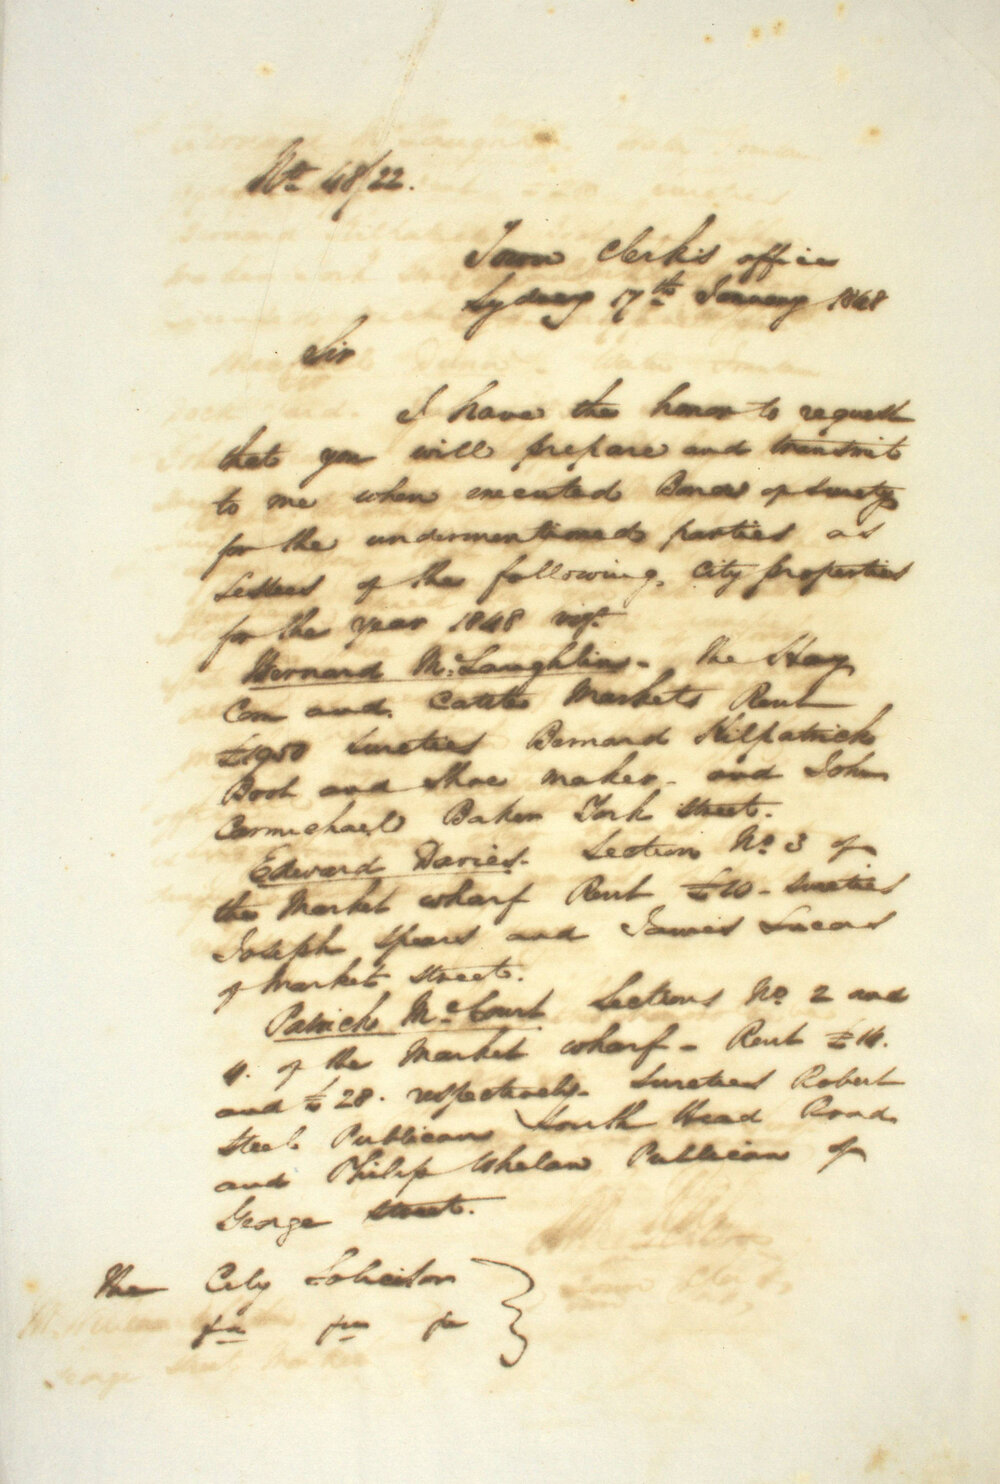 No. 48/22.
Town Clerk's office
Sydney 17th January 1848
Sir
I have the honor to request
that you will prepare and transmit
to me when executed Bonds of Surety
for the undermentioned parties as
Lessees of the following City properties
for the year 1848 vizt.
Bernard McLaughlin - The Hay
Corn and Cattle Markets Rent
£1950 Sureties Bernard Kilpatrick
Boot and Shoe maker - and John
Carmichael Baker York Street.
Edward Davies - Section No. 3 of
the Market wharf Rent £10 - Sureties
Joseph Spears and James Lucas
of Market Street.
Patrick McCourt Sections No. 2 and
4. of the Market wharf - Rent £14.
and £28. respectively - Sureties Robert
Steel Publican South Head Road
and Philip Whelan Publican of
George Street.
The City Solicitor